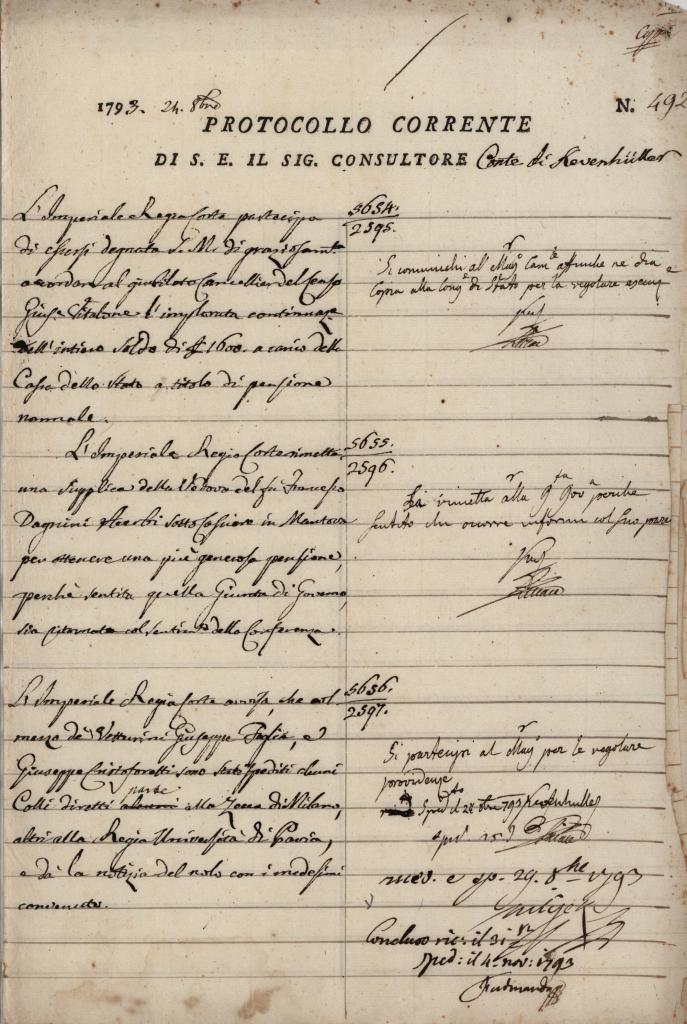 1793. 24. 8bre
N. 492
PROTOCOLLO CORRENTE
DI S. E. IL SIG. CONSULTORE Conte di Kevenhüller
L'Imperiale Regia Corte partecipa
di essersi degnata S. M. di graziosamte
accordare al giubilato Cancelliere del Censo
Giuse Vitalone l'implorata continuaze
dell'intiero Soldo di 1600. a carico della
Cassa dello Stato a titolo di pensione
normale.
5654.
2595.
Si comunichi al Camle affinche ne dia
Copia alla di Stato per la regolare
L'Imperiale Regia Corte rimette
una supplica della Vedova del fu Francesco
Dagnini Acerbi Sotto Cassiere in Mantova
per ottenere una più generosa pensione,
perchè sentita quella Giunta di Governo,
sia ritornata col sentimto della Conferenza.
5655.
2596.
Si rimetta alla Gta Gova perche
sentito chi occorre informi col suo parere
L'Imperiale Regia Corte avvisa, che col
mezzo de' Vetturini Giuseppe e
Giuseppe Cristoforetti sono stati spediti alcuni
Colli diretti parte alla Zecca di Milano,
altri alla Regia Università di Pavia,
e dà la notizia del nolo con i medesimi
convenuto.
5656.
2597.
Si partecipi al per le regolari
providenze
Sped il 28 8bre 793 Kevenhuller
ricev. e sp. 29. 8bre 1793
Concluso ric: il 31
sped: il 4 nov: 1793